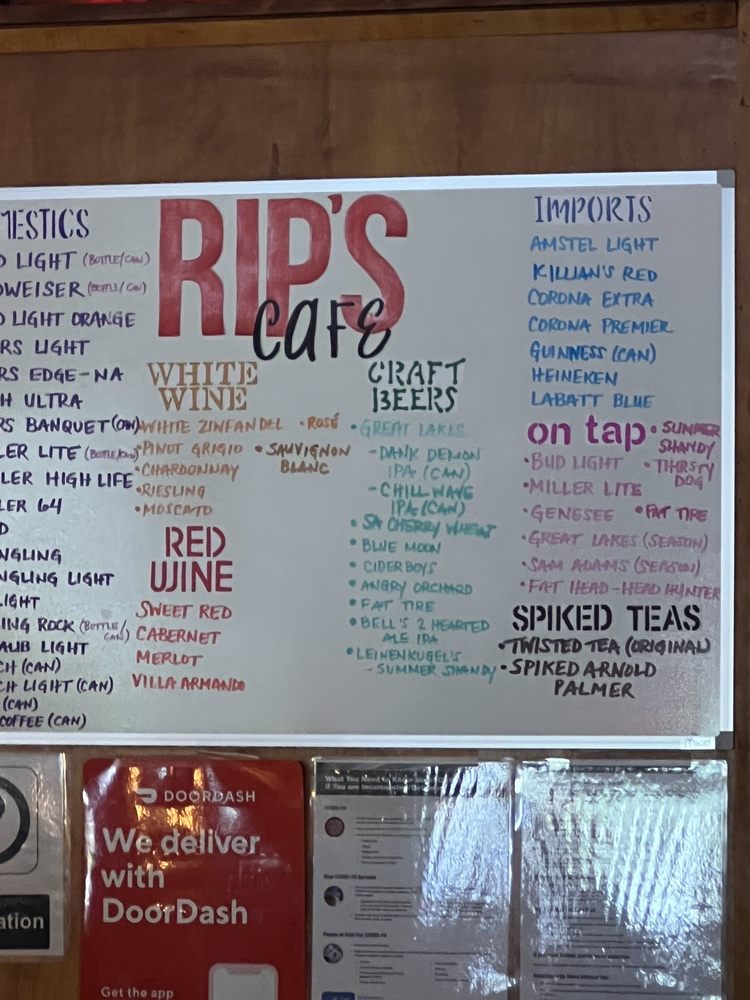 MESTICS
D LIGHT (BOTTLE/CAN)
DWEISER (BOTTLE/CAN)
D LIGHT ORANGE
RS LIGHT
RS EDGE-NA
H ULTRA
RS BANQUET
LER LITE (BOTTLE/CAN)
LER HIGH LIFE
LER 64
D
NGLING
NGLING LIGHT
LIGHT
ING ROCK (BOTTLE/
CAN)
AUB LIGHT
CH (CAN)
CH LIGHT (CAN)
(CAN)
COFFEE (CAN)
RIP'S
CAFE
WHITE
WINE
• WHITE ZINFANDEL
• ROSÉ
• PINOT GRIGIO
• SAUVIGNON
BLANC
• CHARDONNAY
• RIESLING
• MOSCATO
RED
WINE
SWEET RED
CABERNET
MERLOT
VILLA ARMANDO
CRAFT
BEERS
• GREAT LAKES
- DANK DEMON
IPA (CAN)
- CHILL WAVE
IPA (CAN)
• SA CHERRY WHEAT
• BLUE MOON
• CIDERBOYS
• ANGRY ORCHARD
• FAT TIRE
• BELL'S 2 HEARTED
ALE IPA
• LEINENKUGEL'S
- SUMMER SHANDY
IMPORTS
AMSTEL LIGHT
KILLIAN'S RED
CORONA EXTRA
CORONA PREMIER
GUINNESS (CAN)
HEINEKEN
LABATT BLUE
on tap
• SUMMER
SHANDY
• BUD LIGHT
• THIRSTY
DOG
• MILLER LITE
• GENESEE
• FAT TIRE
• GREAT LAKES (SEASON)
• SAM ADAMS (SEASON)
• FAT HEAD - HEAD HUNTER
SPIKED TEAS
• TWISTED TEA (ORIGINAL)
• SPIKED ARNOLD
PALMER
ation
DOORDASH
We deliver
with
DoorDash
Get the app
What You Need to Know